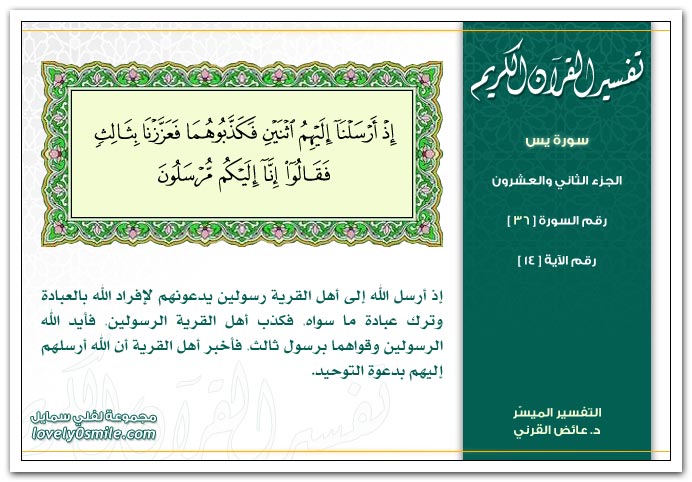 تفسير القرآن الكريم
سورة يس
الجزء الثاني والعشرون
رقم السورة [ ٣٦ ]
رقم الآية [ ١٤ ]
إِذْ أَرْسَلْنَآ إِلَيْهِمُ ٱثْنَيْنِ فَكَذَّبُوهُمَا فَعَزَّزْنَا بِثَالِثٍ
فَقَالُوٓا۟ إِنَّآ إِلَيْكُم مُّرْسَلُونَ
إذ أرسل الله إلى أهل القرية رسولين يدعونهم لإفراد الله بالعبادة
وترك عبادة ما سواه، فكذب أهل القرية الرسولين، فأيد الله
الرسولين وقواهما برسول ثالث، فأخبر أهل القرية أن الله أرسلهم
إليهم بدعوة التوحيد.
تفسير القرآن الكريم
مجموعة لفلي سمايل
lovely0smile.com
التفسير الميسّر
د. عائض القرني